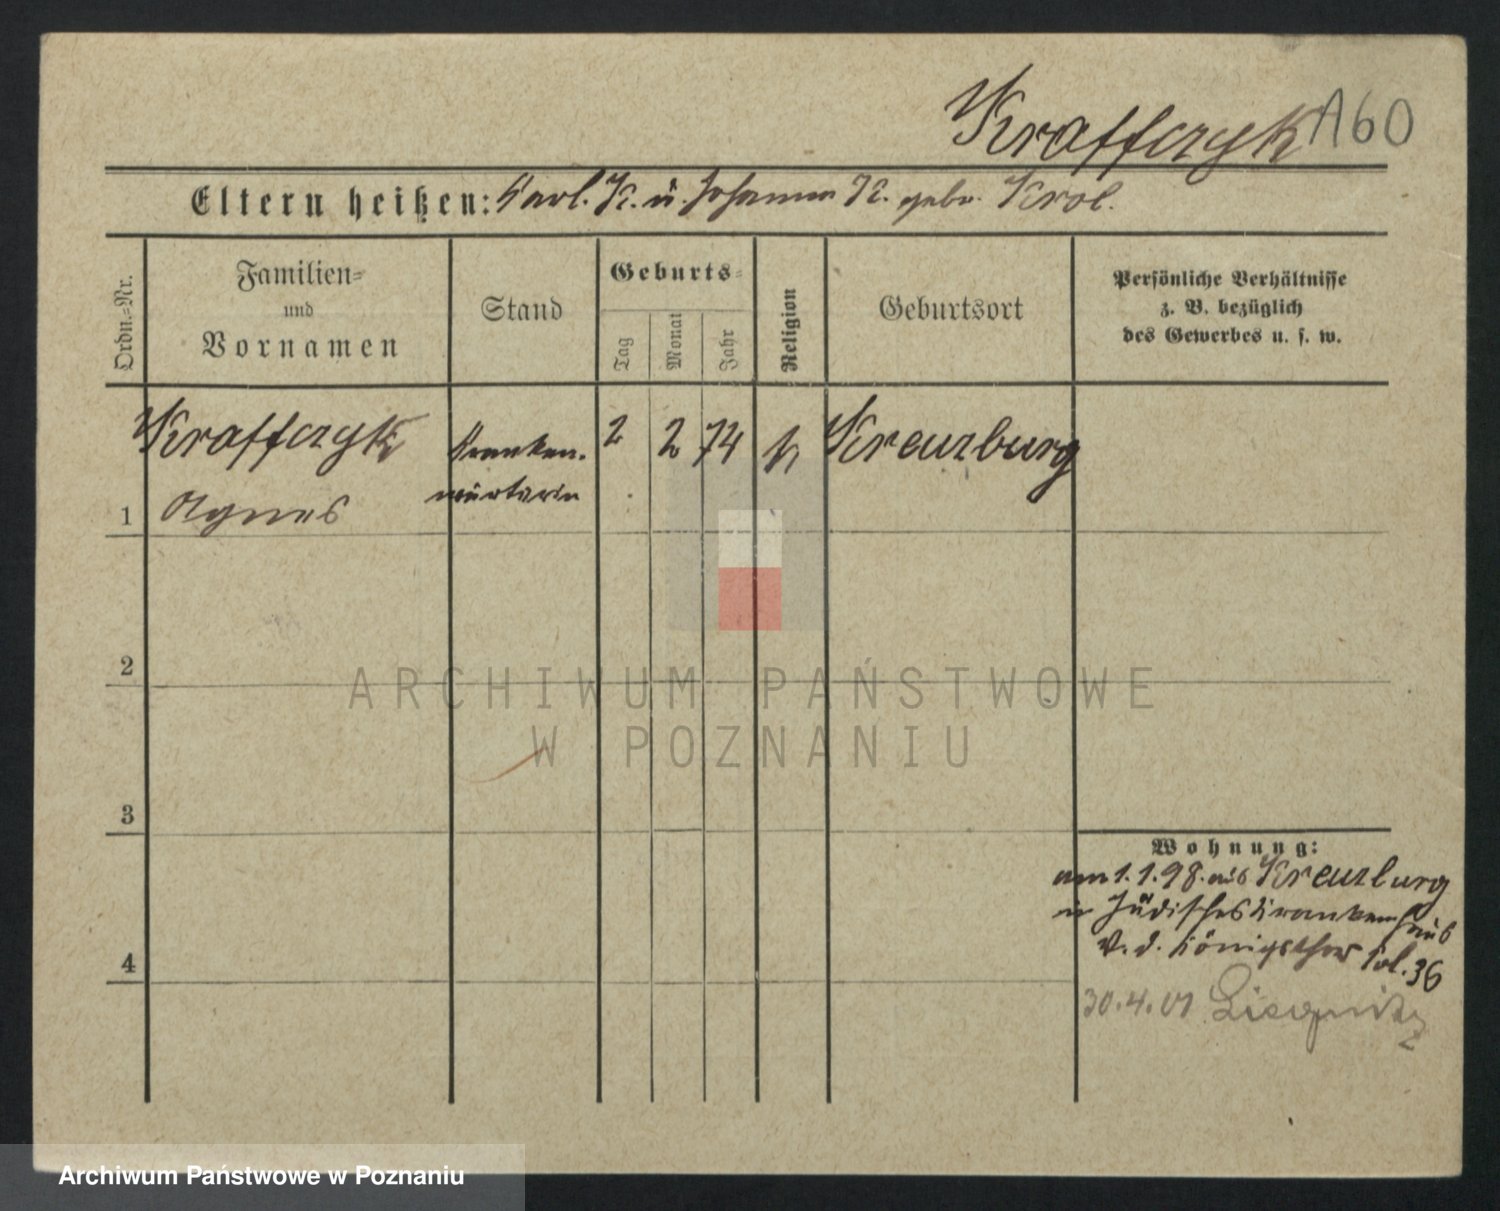 Kraffczyk A60
Eltern heißen: Karl. K. u. Johanna K. gebr. Krol.
Ordn.=Nr.
Familien=
und
Vornamen
Stand
Geburts=
Tag
Monat
Jahr
Religion
Geburtsort
Persönliche Verhältnisse
z. B. bezüglich
des Gewerbes u. s. w.
Kraffczyk Kranken- 2 2 74 k Kreuzburg
wärterin
1 Agnes
2
3
4
Wohnung:
am 1.1.98. aus Kreuzburg
in Jüdisches Krankenhaus
V. d. Königsthor 36
30.4.01 Liegnitz
ARCHIWUM PAŃSTWOWE
W POZNANIU
Archiwum Państwowe w Poznaniu